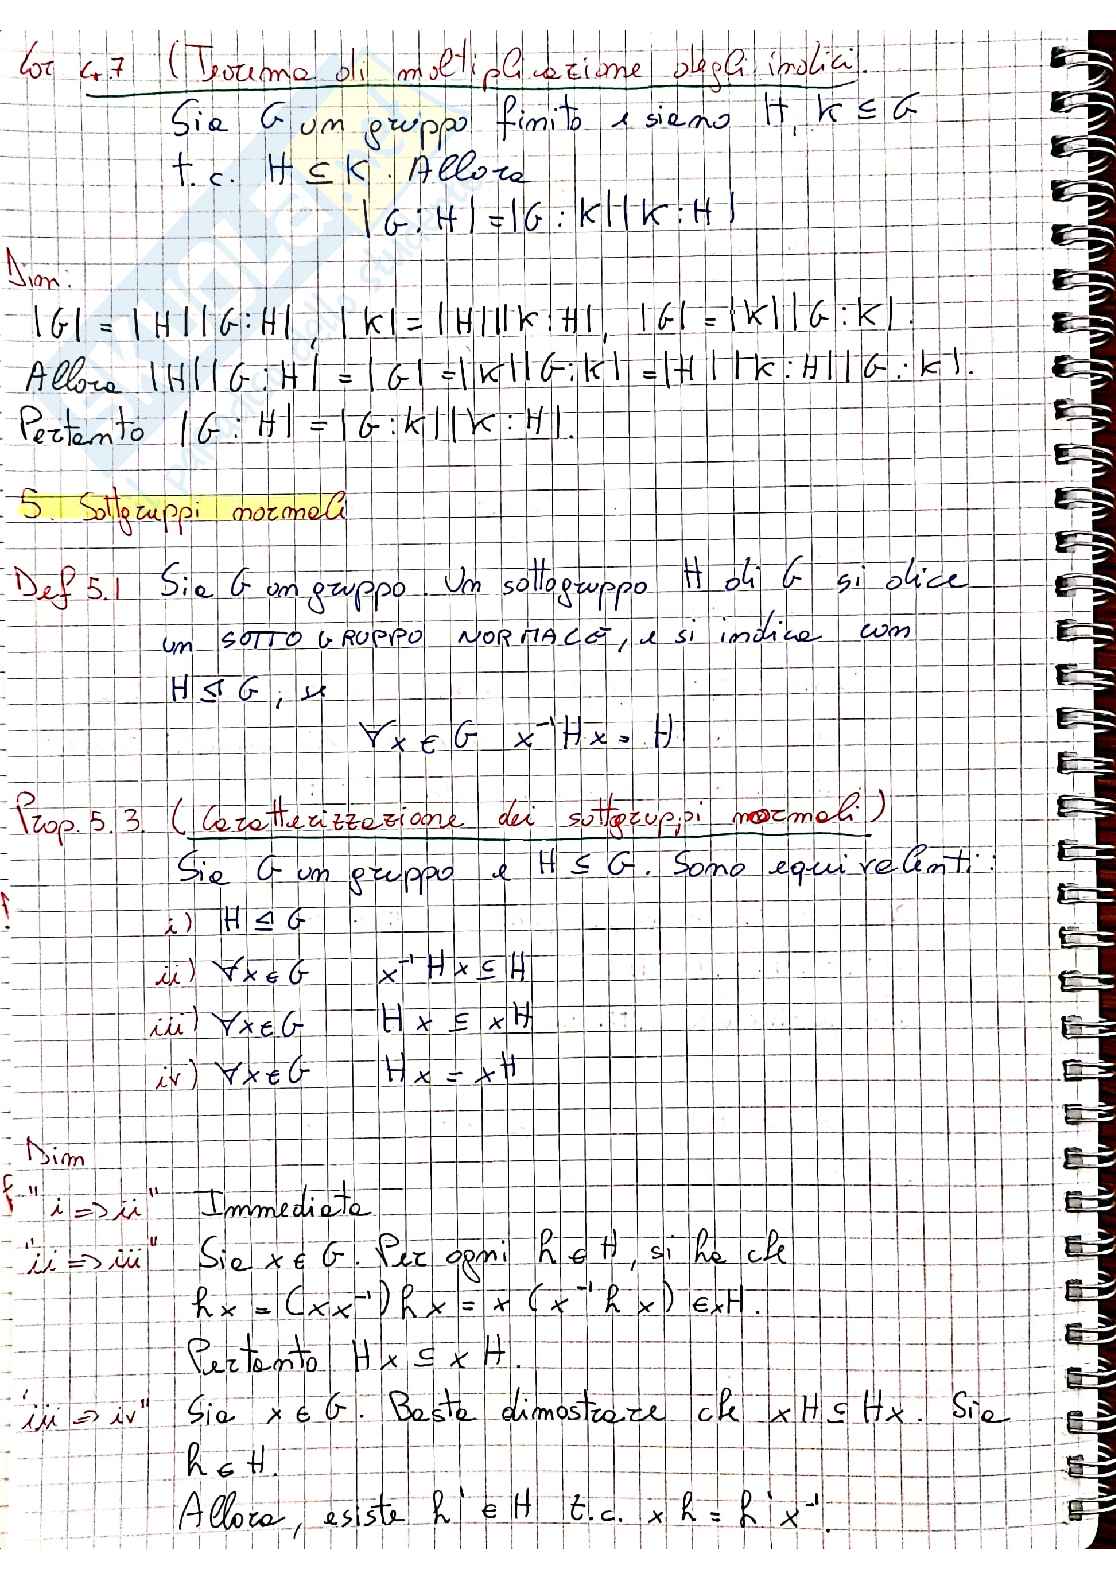 Cor 4.7 (Teorema di moltiplicazione degli indici).
Sia G un gruppo finito e siano H, K ≤ G
t.c. H ⊆ K. Allora
|G:H| = |G:K||K:H|
Dim:
|G| = |H||G:H|, |K| = |H||K:H|, |G| = |K||G:K|.
Allora |H||G:H| = |G| = |K||G:K| = |H||K:H||G:K|.
Pertanto |G:H| = |G:K||K:H|.
5. Sottgruppi normali
Def 5.1 Sia G un gruppo. Un sottogruppo H di G si dice
un SOTTOGRUPPO NORMALE, e si indica con
H ⊴ G, se
∀x ∈ G x⁻¹Hx = H.
Prop. 5.3. (Caratterizzazione dei sottgruppi normali)
Sia G un gruppo e H ≤ G. Sono equivalenti:
i) H ⊴ G
ii) ∀x ∈ G x⁻¹Hx ⊆ H
iii) ∀x ∈ G Hx ⊆ xH
iv) ∀x ∈ G Hx = xH
Dim
"i ⇒ ii" Immediata
"ii ⇒ iii" Sia x ∈ G. Per ogni h ∈ H, si ha che
hx = (xx⁻¹)hx = x(x⁻¹hx) ∈ xH.
Pertanto Hx ⊆ xH.
"iii ⇒ iv" Sia x ∈ G. Basta dimostrare che xH ⊆ Hx. Sia
h ∈ H.
Allora, esiste h' ∈ H t.c. xh = h'x⁻¹.